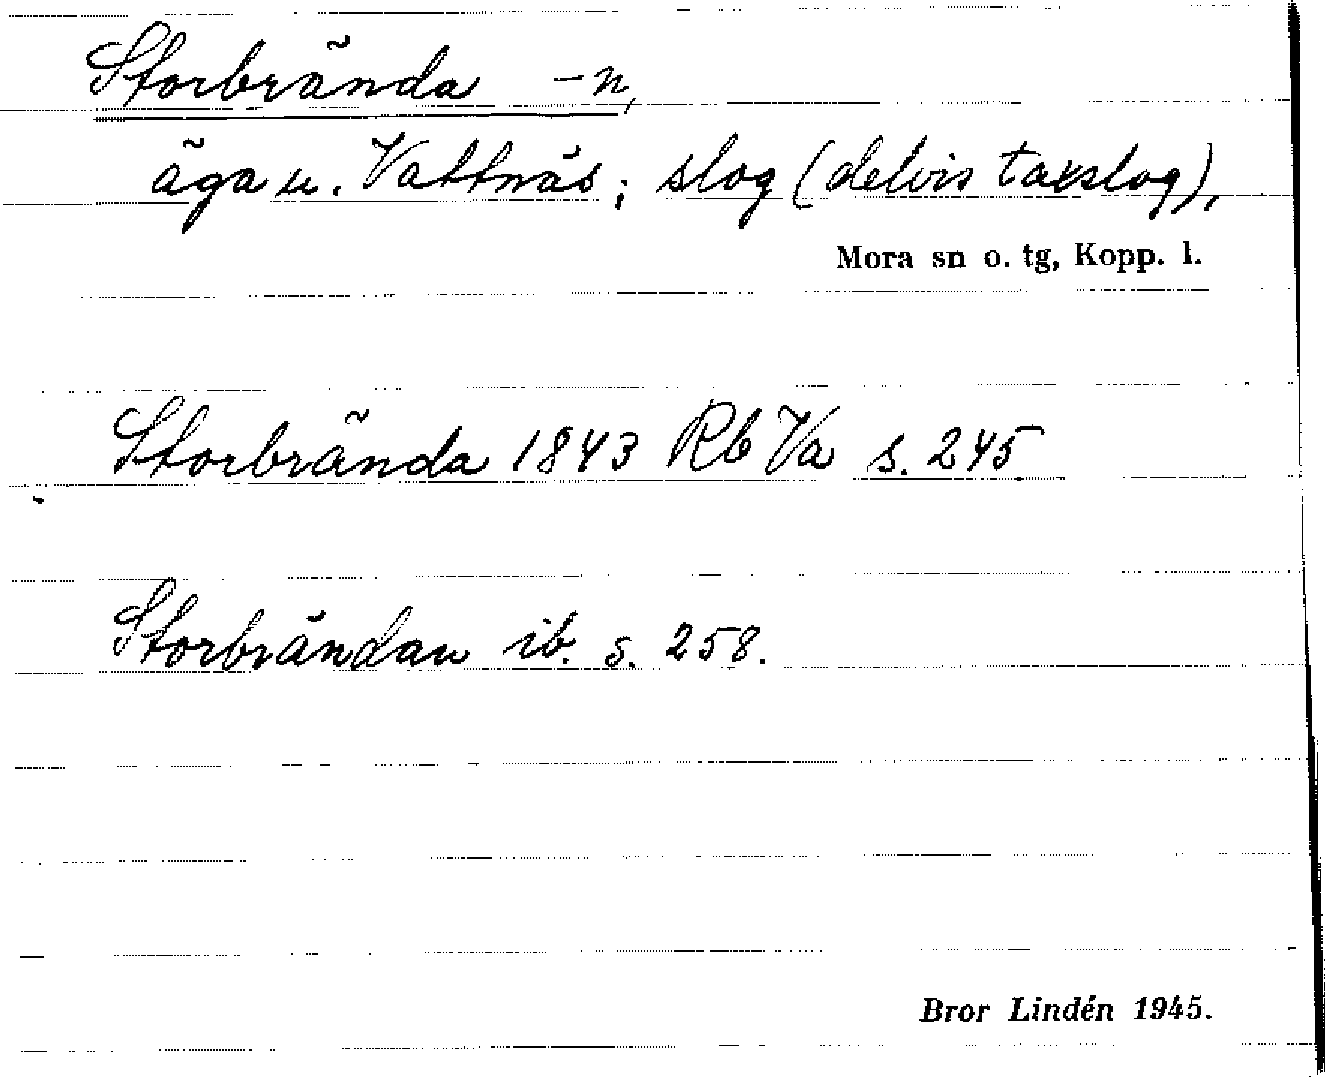 Storbrända -n,
äga u. Vattnäs; slog (delvis taxslog),
Mora sn o. tg, Kopp. l.
Storbrända 1843 Rb Va s. 245
Storbrändan ib. s. 258.
Bror Lindén 1945.